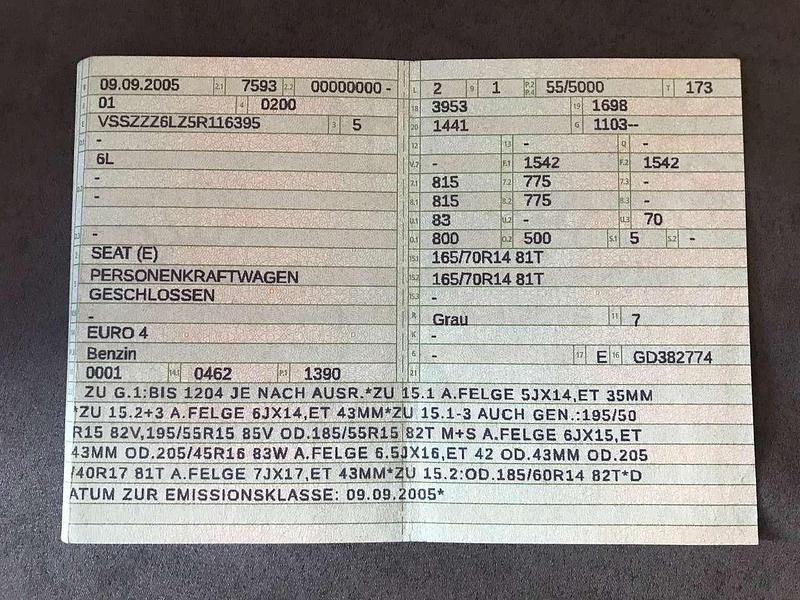 09.09.2005 2.1 7593 2.2 00000000 -
01 4 0200
VSSZZZ6LZ5R116395 3 5
-
6L
-
-
-
SEAT (E)
PERSONENKRAFTWAGEN
GESCHLOSSEN
-
EURO 4
Benzin
0001 14.1 0462 P.1 1390
L 2 9 1 P.2 P.4 55/5000 T 173
18 3953 19 1698
20 1441 G 1103--
12 13 - Q -
V.7 - F.1 1542 F.2 1542
7.1 815 7.2 775 7.3 -
8.1 815 8.2 775 8.3 -
U.1 83 U.2 - U.3 70
O.1 800 O.2 500 S.1 5 S.2 -
15.1 165/70R14 81T
15.2 165/70R14 81T
15.3 -
R Grau 11 7
K -
6 - 17 E 16 GD382774
21
ZU G.1:BIS 1204 JE NACH AUSR.*ZU 15.1 A.FELGE 5JX14,ET 35MM
*ZU 15.2+3 A.FELGE 6JX14,ET 43MM*ZU 15.1-3 AUCH GEN.:195/50
R15 82V,195/55R15 85V OD.185/55R15 82T M+S A.FELGE 6JX15,ET
43MM OD.205/45R16 83W A.FELGE 6.5JX16,ET 42 OD.43MM OD.205
/40R17 81T A.FELGE 7JX17,ET 43MM*ZU 15.2:OD.185/60R14 82T*D
ATUM ZUR EMISSIONSKLASSE: 09.09.2005*